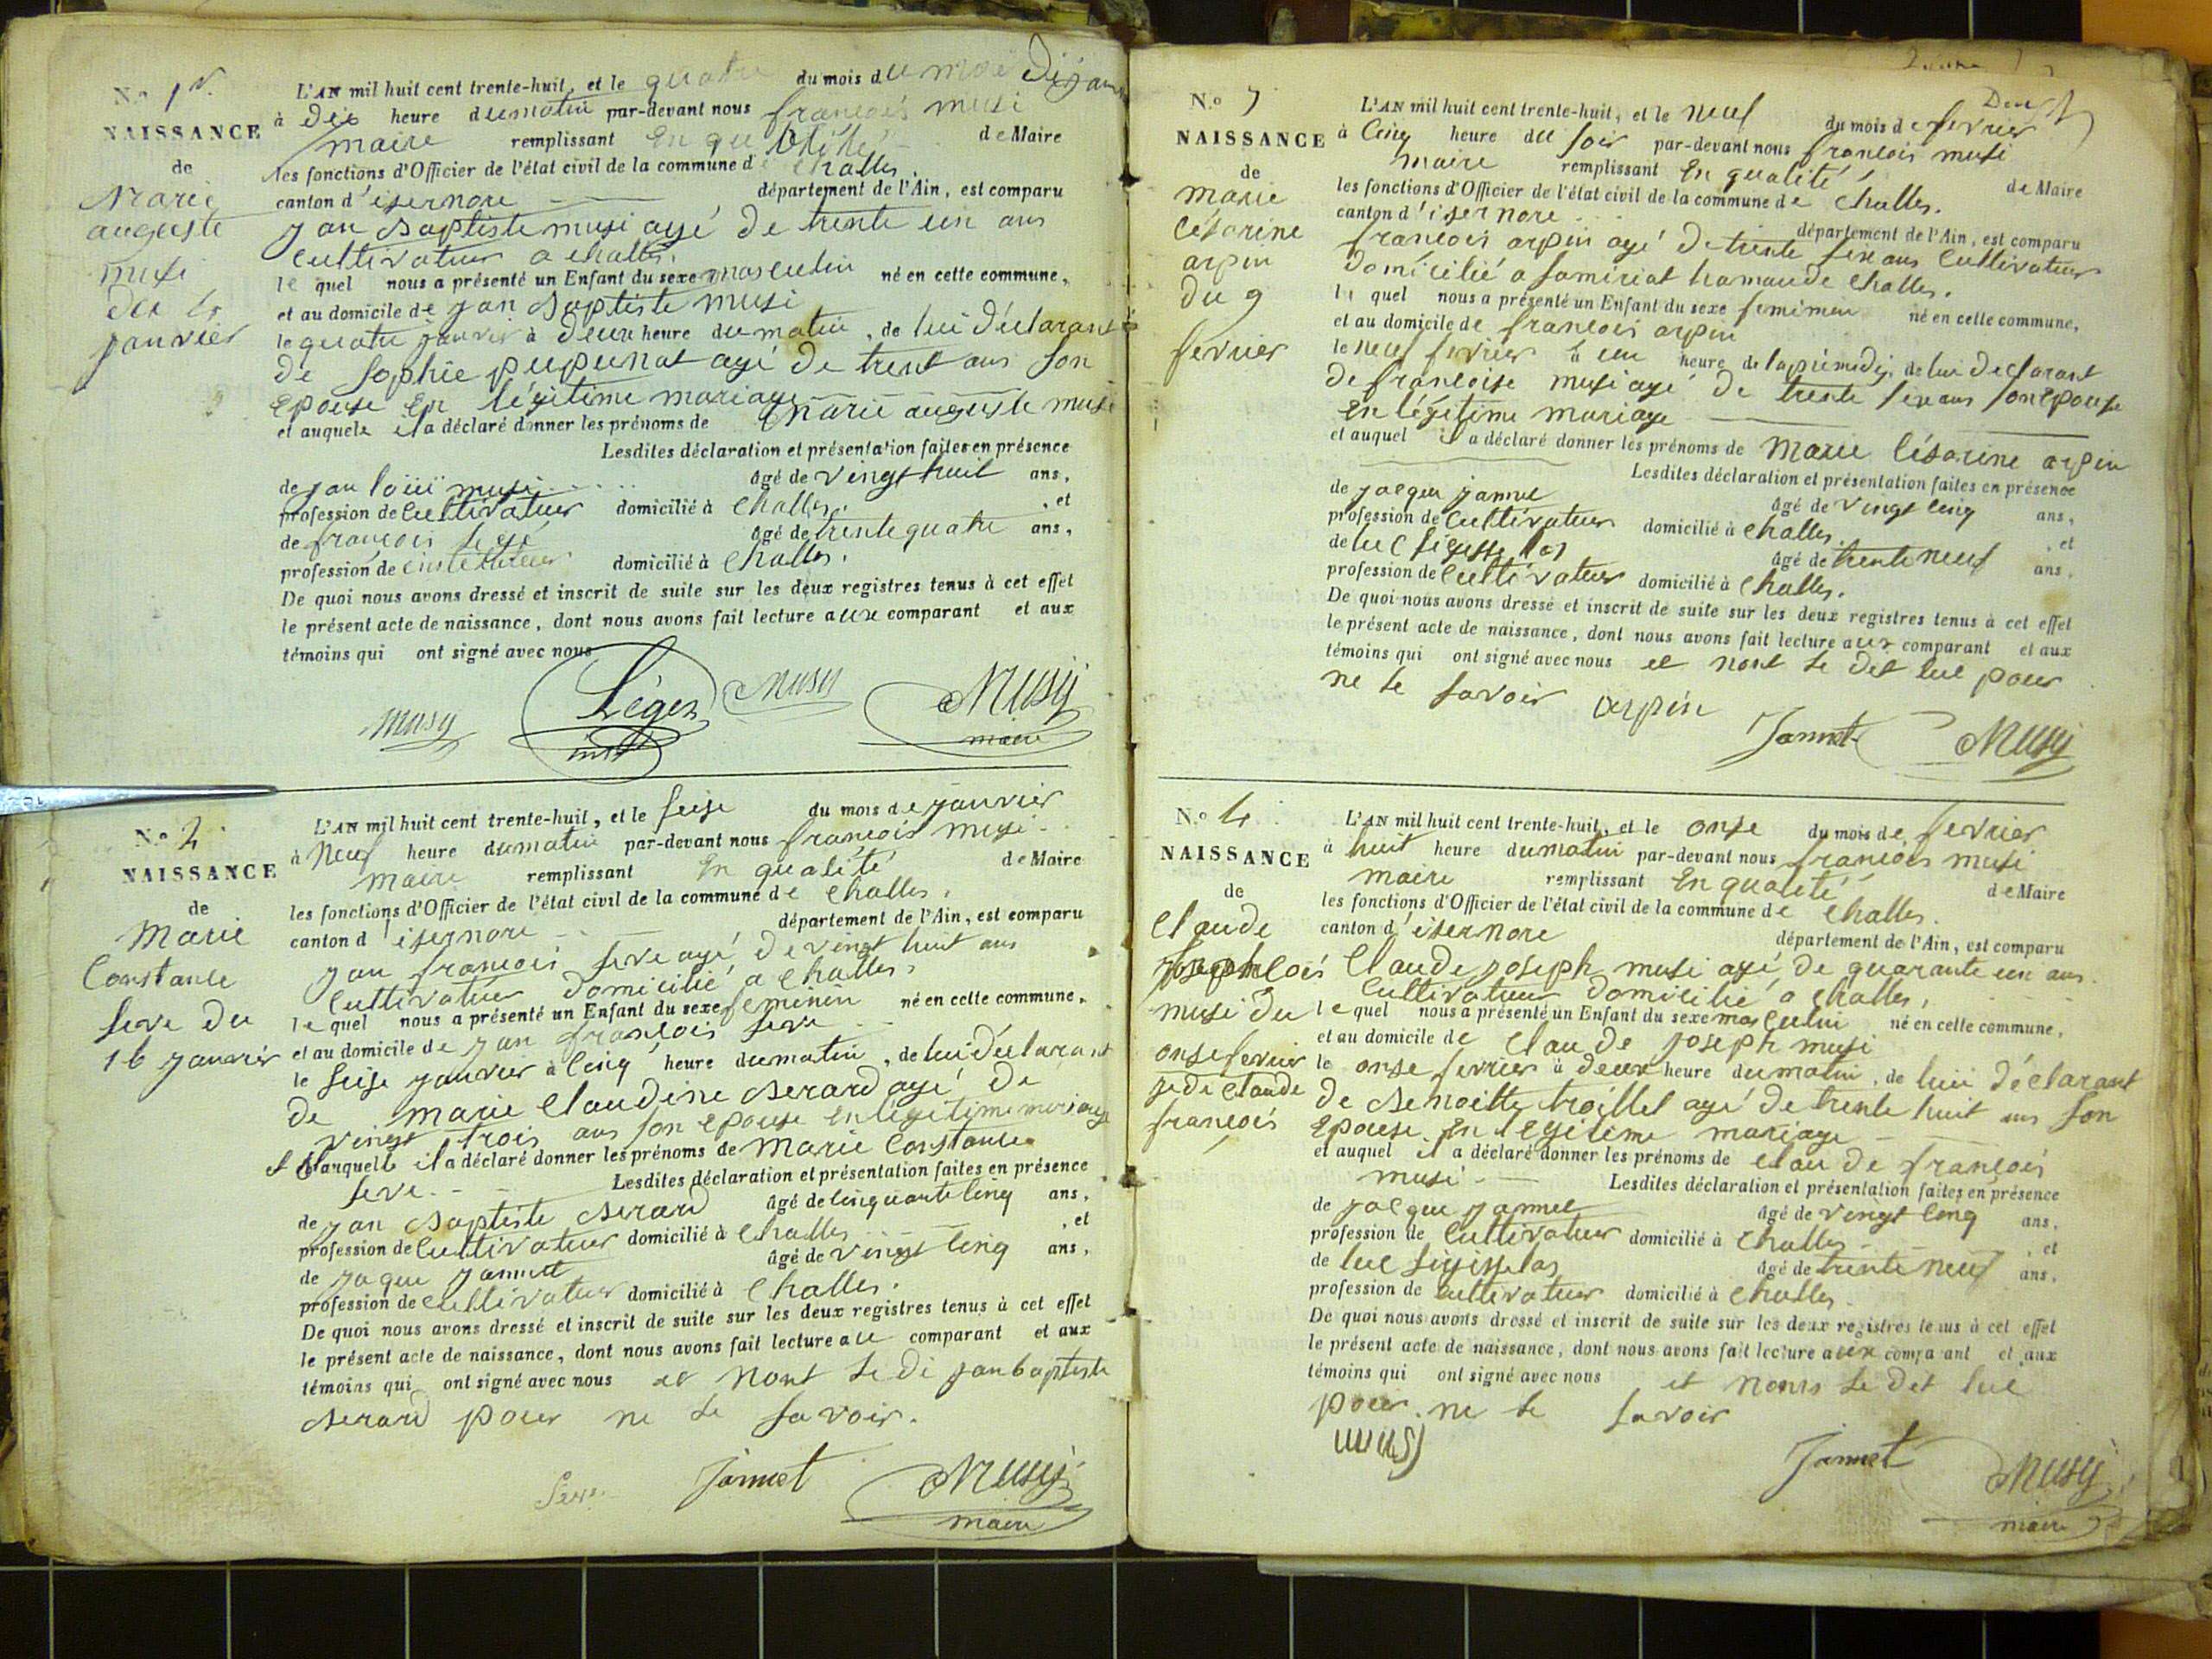 N.o 1er
NAISSANCE
de
Marie
auguste
musi
du 4
janvier
L'AN mil huit cent trente-huit, et le quatre du mois du moi dejanv
à dix heure du matin par-devant nous françois musi
maire remplissant En qualité de Maire
les fonctions d'Officier de l'état civil de la commune de challes.
canton d'isernore département de l'Ain, est comparu
jan Baptiste musi agé de trente un ans
cultivateur a challes.
le quel nous a présenté un Enfant du sexe masculin né en cette commune,
et au domicile de jan Baptiste musi
le quatre janvier à deux heure du matin, de lui déclarant
de Sophie pupunat agé de trent ans son
Epouse En légitime mariage
et auquele il a déclaré donner les prénoms de Marie auguste musi
Lesdites déclaration et présentation faites en présence
de jan loïïï musi âgé de vingt huit ans,
profession de cultivateur domicilié à challes. , et
de françois legé âgé de trente quatre ans,
profession de instituteur domicilié à challes.
De quoi nous avons dressé et inscrit de suite sur les deux registres tenus à cet effet
le présent acte de naissance, dont nous avons fait lecture aux comparant et aux
témoins qui ont signé avec nous
musy Léger inst Musy Musy
maire
N.o 2
NAISSANCE
de
Marie
Constance
seve du
16 janvier
L'AN mil huit cent trente-huit, et le seise du mois de janvier
à Neuf heure du matin par-devant nous françois musi
maire remplissant En qualité de Maire
les fonctions d'Officier de l'état civil de la commune de challes.
canton d'isernore département de l'Ain, est comparu
jan françois seve agé de vingt huit ans
cultivateur domicilié a challes.
le quel nous a présenté un Enfant du sexe feminin né en cette commune,
et au domicile de jan françois seve
le seise janvier à cinq heure du matin, de lui déclarant
de marie claudine Berard agé de
vingt trois ans son epouse en légetime mariage
et auquelle il a déclaré donner les prénoms de Marie Constance
seve. Lesdites déclaration et présentation faites en présence
de jan Baptiste Berard âgé de cinquante cinq ans,
profession de cultivateur domicilié à challes , et
de jaque jannet âgé de vingt cinq ans,
profession de cultivateur domicilié à challes.
De quoi nous avons dressé et inscrit de suite sur les deux registres tenus à cet effet
le présent acte de naissance, dont nous avons fait lecture au comparant et aux
témoins qui ont signé avec nous et nont le di jan baptiste
Berard pour ne le savoir.
Seve Jannet Musy
maire
N.o 3
NAISSANCE
de
marie
césarine
arpin
du 9
fevrier
L'AN mil huit cent trente-huit, et le neuf du mois de fevrier
à cinq heure du soir par-devant nous françois musi
maire remplissant En qualité de Maire
les fonctions d'Officier de l'état civil de la commune de challes.
canton d'isernore département de l'Ain, est comparu
françois arpin agé de trente six ans cultivateur
domicilié a samiriat hamaude challes.
le quel nous a présenté un Enfant du sexe feminin né en cette commune,
et au domicile de françois arpin
le neuf fevrier à un heure de lapremedij, de lui declarant
de françoise musi agé de trente six ans son epouse
en légetime mariage
et auquel il a déclaré donner les prénoms de Marie césarine arpin
Lesdites déclaration et présentation faites en présence
de jacque jannet âgé de vingt cinq ans,
profession de cultivateur domicilié à challes. , et
de luc âgé de trente neuf ans,
profession de cultivateur domicilié à challes.
De quoi nous avons dressé et inscrit de suite sur les deux registres tenus à cet effet
le présent acte de naissance, dont nous avons fait lecture aux comparant et aux
témoins qui ont signé avec nous et nont le dit luc pour
ne le savoir arpin
Jannet Musy
N.o 4
NAISSANCE
de
claude
françois
musi du
onse fevrier
je di claude
françois
L'AN mil huit cent trente-huit, et le onse du mois de fevrier
à huit heure du matin par-devant nous françois musi
maire remplissant En qualité de Maire
les fonctions d'Officier de l'état civil de la commune de challes.
canton d'isernore département de l'Ain, est comparu
claude joseph musi agé de quarante un ans
cultivateur domicilié a challes.
le quel nous a présenté un Enfant du sexe masculin né en cette commune,
et au domicile de claude joseph musi
le onse fevrier à deux heure du matin, de luii déclarant
de Benoitte troillet agé de trente huit ans son
epouse en legitime mariage
et auquel il a déclaré donner les prénoms de claude françois
musi Lesdites déclaration et présentation faites en présence
de jacque jannet âgé de vingt cinq ans,
profession de cultivateur domicilié à challes , et
de luc âgé de trente neuf ans,
profession de cultivateur domicilié à challes
De quoi nous avons dressé et inscrit de suite sur les deux registres tenus à cet effet
le présent acte de naissance, dont nous avons fait lecture aux comparant et aux
témoins qui ont signé avec nous et nons le dit luc
pour ne le savoir
musy
Jannet Musy
maire